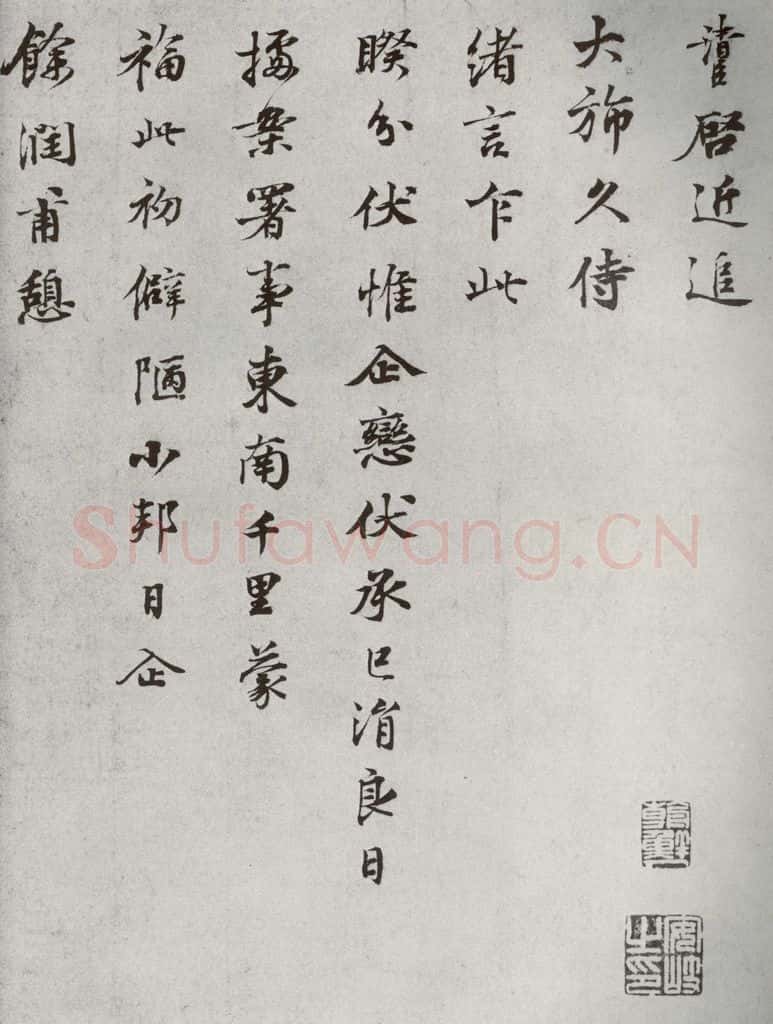 啓近追
大斾久侍
緒言乍此
睽分伏惟企戀伏承已涓良日
據案署事東南千里蒙
福此初僻陋小邦日企
餘潤甫憩
安岐之印
Shufawang.CN